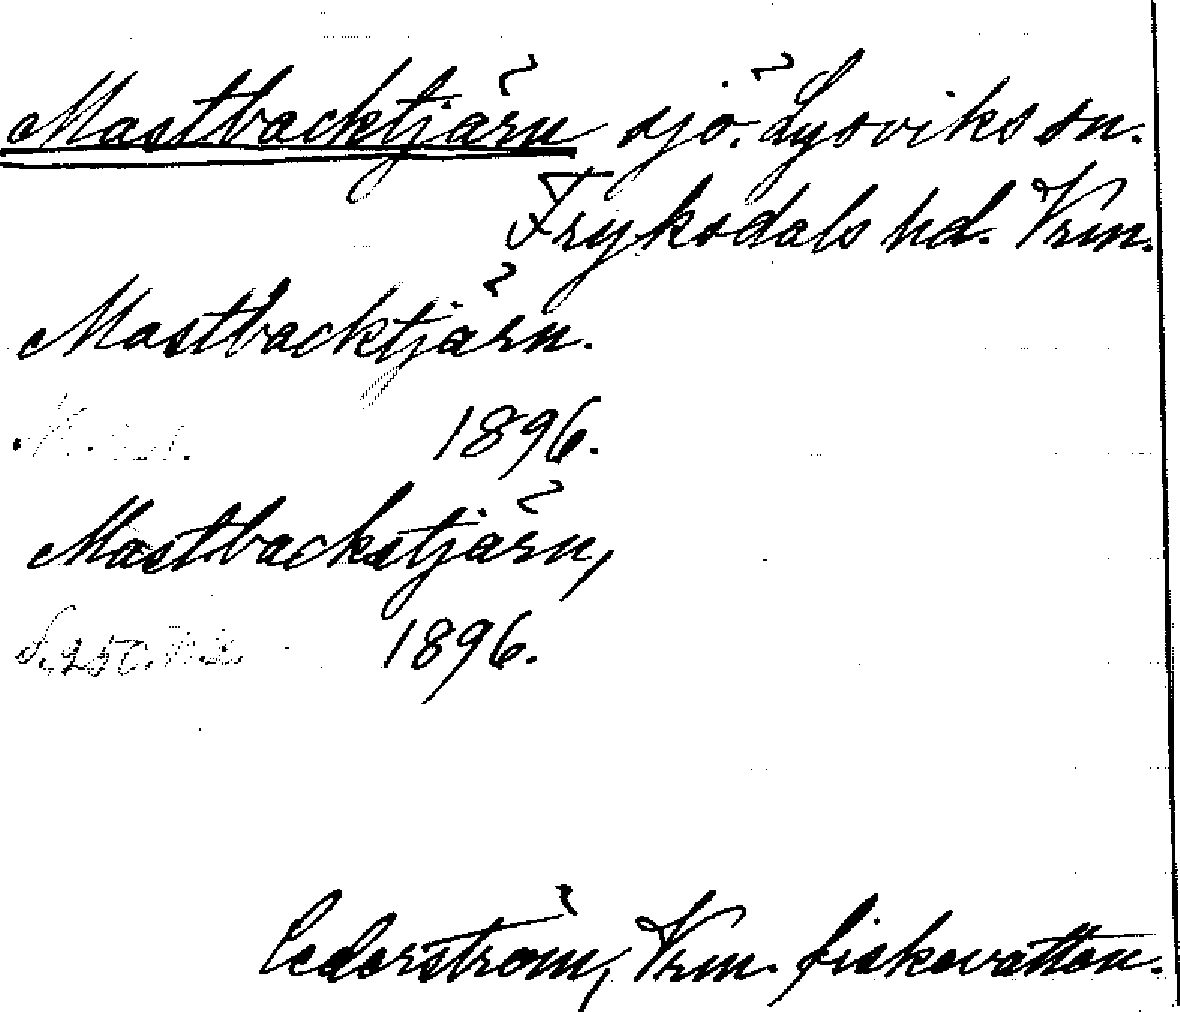 Mastbacktjärn sjö. Lysviks sn.
Fryksdals hd. Vrm.
Mastbacktjärn.
1896.
Mastbackstjärn,
1896.
Cederström, Vrm. fiskevatten.